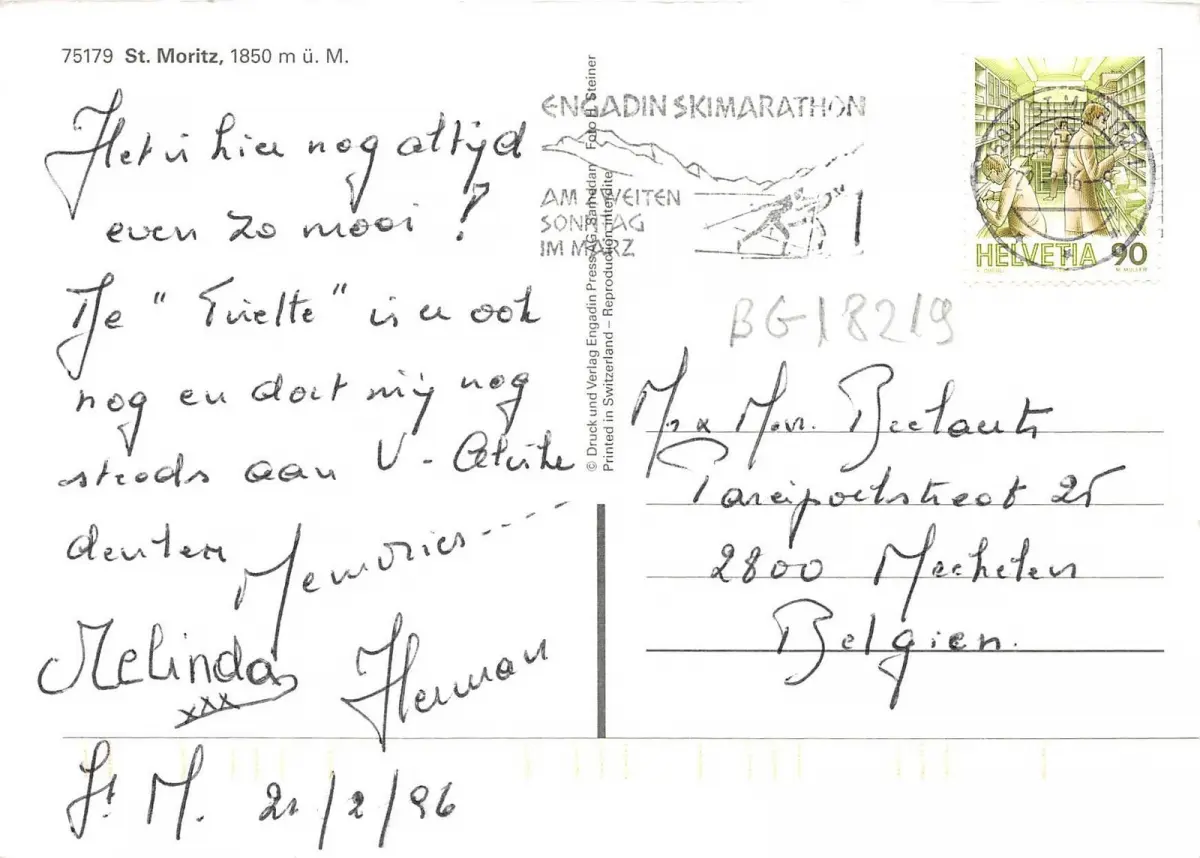 75179 St. Moritz, 1850 m ü. M.
Het is hier nog altijd
even zo mooi !
De " " is er ook
nog en doet mij nog
steeds aan V -
denken
Memories----
Melinda
xxx
Herman
St. M. 21/2/96
© Druck und Verlag Engadin Press AG, Samedan Foto H. Steiner
Printed in Switzerland – Reproduction interdite
ENGADIN SKIMARATHON
AM ZWEITEN
SONNTAG
IM MÄRZ
HELVETIA 90
BG18219
Mr & Mvr.
25
2800 Mechelen
Belgien.